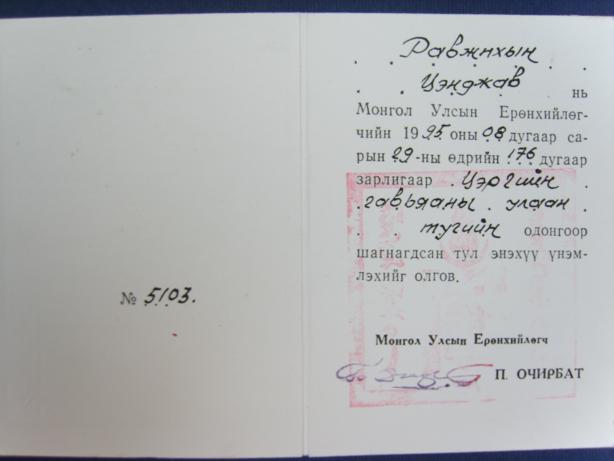 № 5103.
Равжихын
Цэнджав нь
Монгол Улсын Ерөнхийлөг-
чийн 1995 оны 08 дугаар са-
рын 29-ны өдрийн 176 дугаар
зарлигаар Цэргийн
гавьяаны улаан
тугийн одонгоор
шагнагдсан тул энэхүү үнэм-
лэхийг олгов.
Монгол Улсын Ерөнхийлөгч
П. ОЧИРБАТ